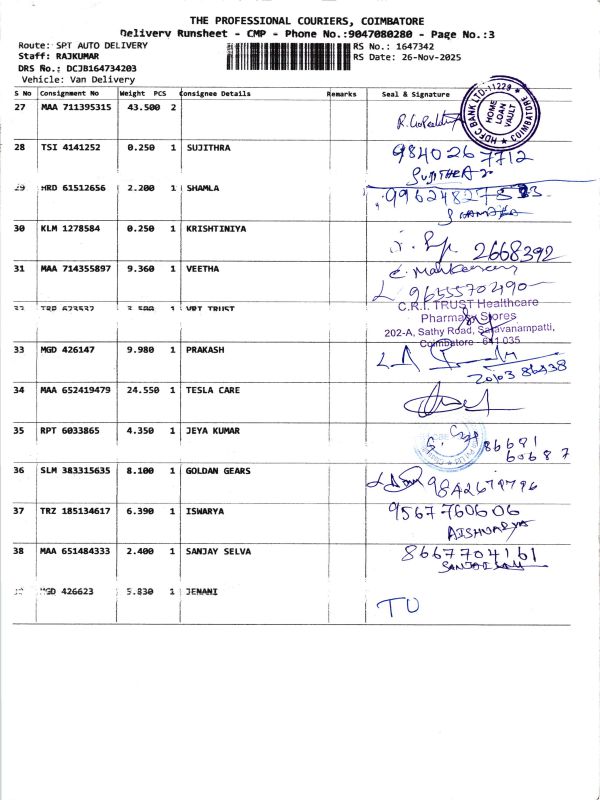 THE PROFESSIONAL COURIERS, COIMBATORE
Delivery Runsheet - CMP - Phone No.:9047080280 - Page No.:3
Route: SPT AUTO DELIVERY
Staff: RAJKUMAR
DRS No.: DCJB164734203
Vehicle: Van Delivery
RS No.: 1647342
RS Date: 26-Nov-2025
S No Consignment No Weight PCS Consignee Details Remarks Seal & Signature
27 MAA 711395315 43.500 2
HDFC BANK LTD-11229 HOME LOAN VAULT COIMBATORE
28 TSI 4141252 0.250 1 SUJITHRA 9840267712
29 HRD 61512656 2.200 1 SHAMLA
30 KLM 1278584 0.250 1 KRISHTINIYA 2668392
31 MAA 714355897 9.360 1 VEETHA
9655570290
32 TRP 673537 3.500 1 VRT TRUST
C.R.I. TRUST Healthcare
Pharmacy Stores
202-A, Sathy Road, Saravanampatti,
Coimbatore - 641 035
33 MGD 426147 9.980 1 PRAKASH
34 MAA 652419479 24.550 1 TESLA CARE
35 RPT 6033865 4.350 1 JEYA KUMAR 86681
60687
36 SLM 383315635 8.100 1 GOLDAN GEARS 9842679796
37 TRZ 185134617 6.390 1 ISWARYA 9567760606
AISHWARYA
38 MAA 651484333 2.400 1 SANJAY SELVA 8667704161
MGD 426623 5.830 1 JENANI
TU